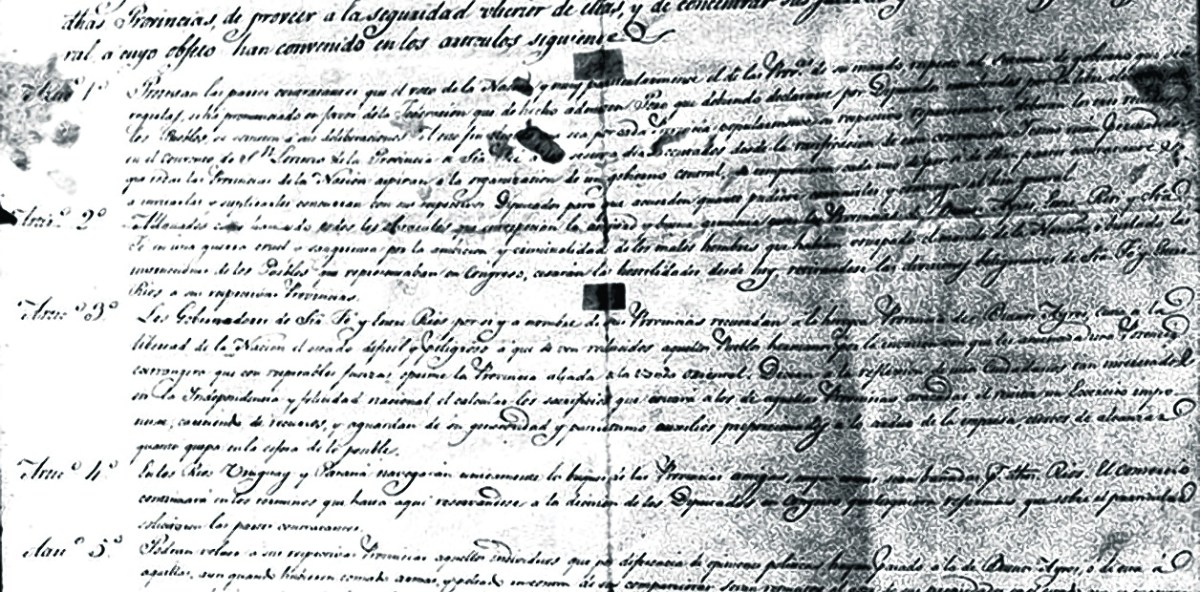 dhas Provincias, de proveer a la seguridad ulterior de ellas, y de concentrar sus
ral, a cuyo obgeto han convenido en los articulos siguientes
Artic.º 1º Protestan las partes contratantes que el voto de la Nación, y muy particularmente el de las Prov.s de su mando, respecto al sistema de gobierno que
regirlas, se ha pronunciado en favor de la Federación que de hecho admiten. Pero que debiendo declararse por Diputados nombrados por la libre
los Pueblos, se someten a sus deliberaciones. A este fin electo que sea por cada Provincia popularmente su respectivo representante, deberán los tres reunirse
en el convento de S.n Lorenzo de la Provincia de Sta Fé a los sesenta dias contados desde la ratificación de esta convención
que todas las Provincias de la Nación aspiran a la organización de un gobierno central, se compromete cada una de por si de dhas partes contratantes
a invitarlas y suplicarles concurran con sus respectivos Diputados para que acuerden quanto pudiere convenirles y convenga al bien general
Artic.º 2º Allanados como han sido todos los obstaculos que entorpecían la amistad y buena armonia entre las Provincias de Buenos Ayres, Entre Rios y Sta
Fé en una guerra cruel y sangrienta por la ambicion y criminalidad de los malos hombres que habían usurpado el mando de la Nación, o burlado las
instrucciones de los Pueblos que representaban en Congreso, cesarán las hostilidades desde hoy, retirandose las divisiones beligerantes de Sta Fé y Entre
Rios a sus respectivas Provincias.
Artic.º 3º Los Gobernadores de Sta Fé y Entre Rios por si y a nombre de sus Provincias recuerdan a la heroyca Provincia de Buenos Ayres, cuna de la
libertad de la Nación el estado dificil y peligroso a que se ven reducidos aquellos Pueblos hermanos por la invasión con que los amenaza una Potencia
extrangera que con respetables fuerzas oprime la Provincia aliada de la Vanda oriental. Dexan a la reflexión de unos Ciudadanos tan interesados
en la Independencia y felicidad nacional el calcular los sacrificios que costará a los de aquellas Provincias atacadas el resistir un Exercito impo
nente, careciendo de recursos, y aguardan de su generosidad y patriotismo auxilios proporcionados a lo arduo de la empresa, ciertos de alcanzar
quanto quepa en la esfera de lo posible.
Artic.º 4º En los Rios Uruguay y Paraná navegarán unicamente los buques de las Provincias amigas, cuyas costas sean bañadas por dhos Rios. El comercio
continuará en los terminos que hasta aquí reservandose a la decision de los Diputados en congreso qualesquiera reformas que sobre el particular
solicitaren las partes contratantes.
Artic.º 5º Podran volver a sus respectivas Provincias aquellos individuos que por diferencia de opiniones politicas hayan pasado a la de Buenos Ayres, o de esta á
aquellas, aun quando hubieren tomado armas, y peleado en contra de sus compatriotas